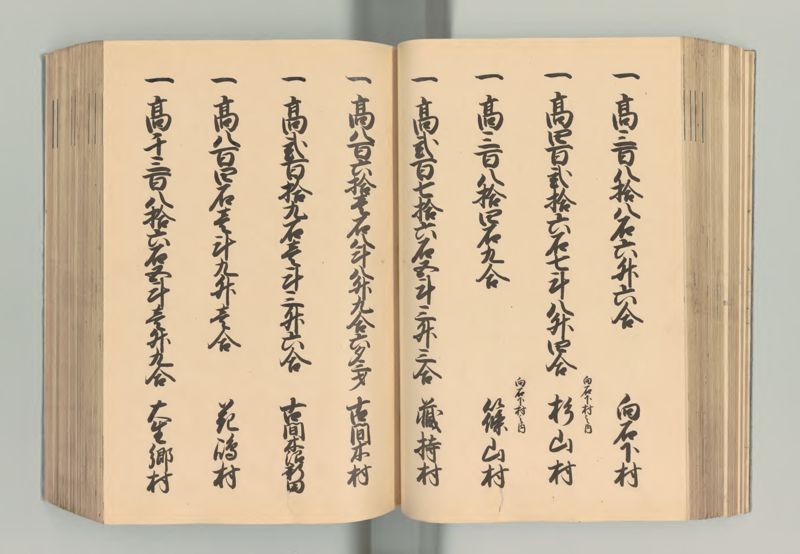 一 高三百八拾八石六升六合 向石下村
一 高四百弐拾六石七斗八升四合 向石下村之内 杉山村
一 高三百八拾四石九合 向石下村之内 篠山村
一 高弐百七拾六石五斗三升三合 蔵持村
一 高八百六拾壱石八斗八升九合六夕三才 古間木村
一 高弐百拾九石壱斗三升六合 古間木沼新田
一 高八百四石壱斗九升壱合 花嶋村
一 高千三百八拾六石五斗壱升九合 大生郷村